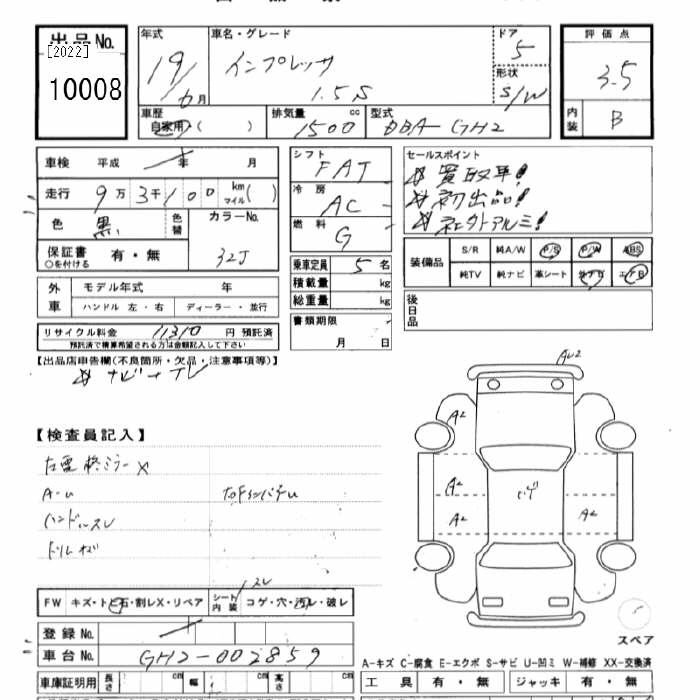 出品No.
[2022]
10008
年式 車名・グレード ドア 評価点
19 インプレッサ 5 3.5
6月 1.5S 形状 S/W
車歴 排気量 cc 型式 内装 B
自家用・( ) 1500 DBA-GH2
車検 平成 年 月 シフト FAT セールスポイント
走行 9万3千100 km マイル( ) 冷房 AC ☆買取車!
☆初出品!
色 黒 色替 カラーNo. 燃料 G ☆社外アルミ!
保証書 有・無 32J
○を付ける
乗車定員 5名 装備品 S/R 純A/W P/S P/W ABS
積載量 kg 純TV 純ナビ 革シート 外ナビ エアB
総重量 kg
外車 モデル年式 年
ハンドル 左・右 ディーラー・並行
後日品
リサイクル料金 11310 円 預託済 書類期限
預託済で精算希望される方は金額記入して下さい 月 日
【出品店申告欄(不良箇所・欠品・注意事項等)】
☆ナビ+TV
【検査員記入】
A-U
ハンドルスレ
A2
A2
A2
A2
A2
FW キズ・トビ石・割レX・リペア シート内装 コゲ・穴・汚レ・破レ
スレ
登録No.
車台No. GH2-002859
スペア
A-キズ C-腐食 E-エクボ S-サビ U-凹ミ W-補修 XX-交換済
車庫証明用 長さ cm 幅 cm 高さ cm 工具 有・無 ジャッキ 有・無